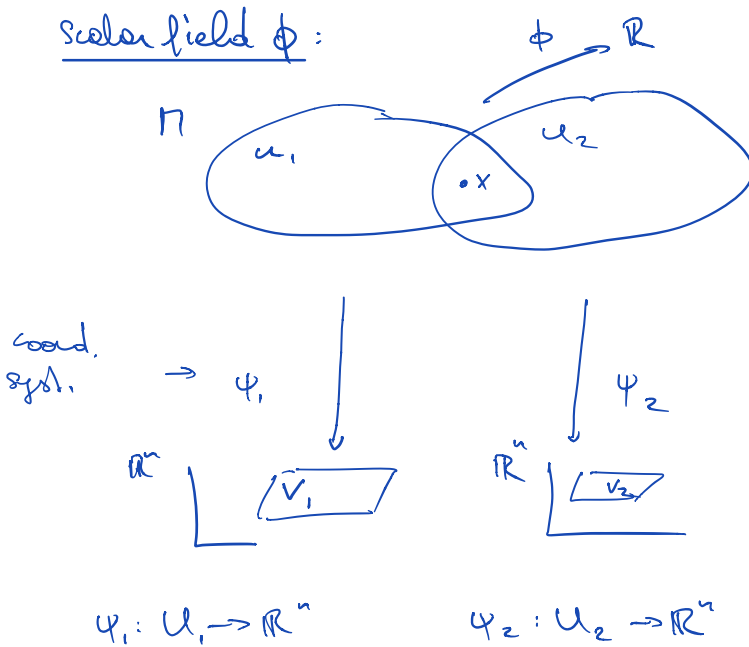 scalar field ϕ :
ϕ ℝ
M
U₁ U₂
• x
coord.
syst. → ψ₁ ψ₂
ℝⁿ V₁ ℝⁿ V₂
ψ₁ : U₁ → ℝⁿ ψ₂ : U₂ → ℝⁿ